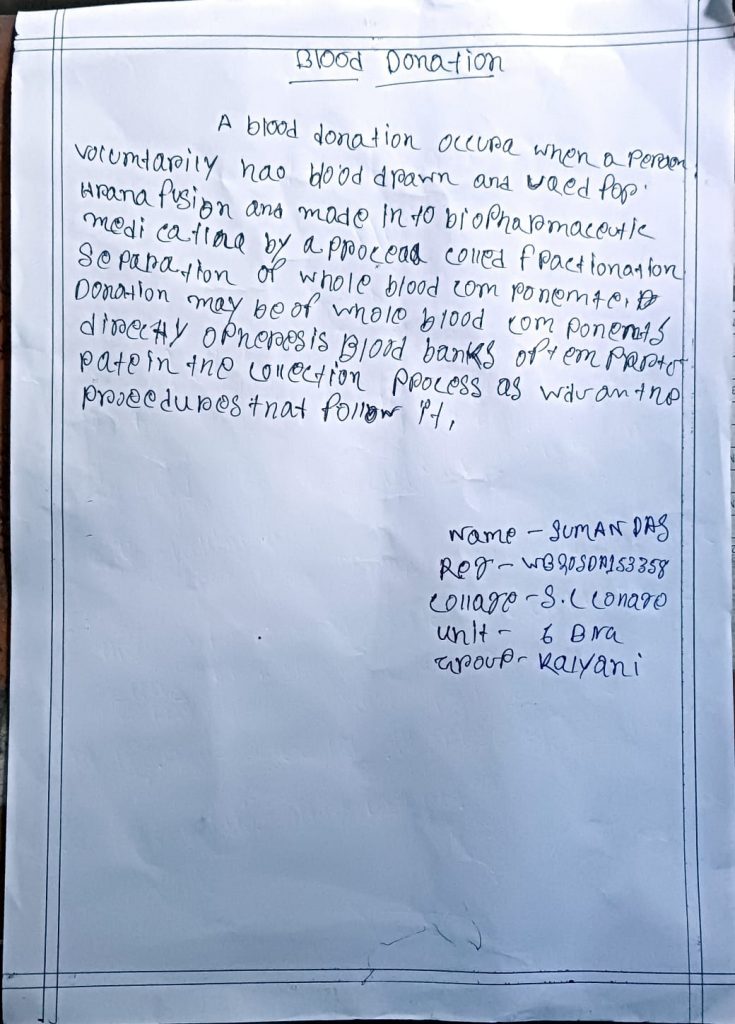 Blood Donation
A blood donation occupa when a person
vorumtarily has blood drawn and used for
Hrana fusion and made in to biopharmaceutic
medi cationa by a procead colled fractionation
Separation of whole blood com ponemte.
Donation may be of whole blood com ponemts
directly opheresis Blood banks oftem partof
pate in the collection process as wduan the
procedures that follow it,
Name - SUMAN DAS
Reg - WB20SDA153358
Collage - S.C Conage
Unit - 6 Bna
Group - Kalyani